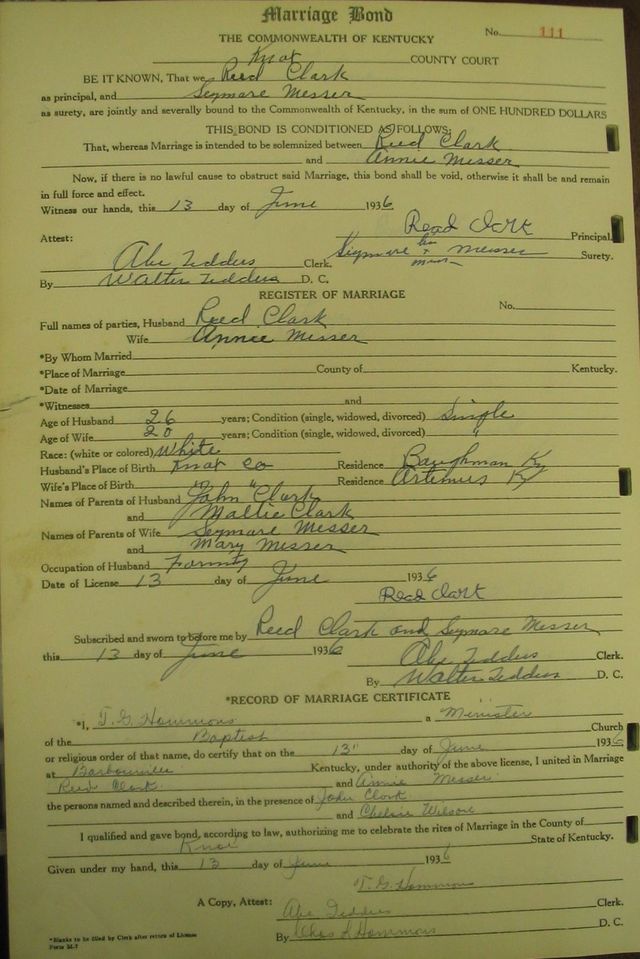 Marriage Bond
No. 111
THE COMMONWEALTH OF KENTUCKY
Knox COUNTY COURT
BE IT KNOWN, That we Reed Clark
as principal, and Seymare Messer
as surety, are jointly and severally bound to the Commonwealth of Kentucky, in the sum of ONE HUNDRED DOLLARS
THIS BOND IS CONDITIONED AS FOLLOWS:
That, whereas Marriage is intended to be solemnized between Reed Clark
and Annie Messer
Now, if there is no lawful cause to obstruct said Marriage, this bond shall be void, otherwise it shall be and remain
in full force and effect.
Witness our hands, this 13 day of June 1936
Read Clark Principal,
Attest:
Seymare Messer Surety.
Abe Teddus Clerk.
By Walter Teddus D. C.
REGISTER OF MARRIAGE
No.
Full names of parties, Husband Reed Clark
Wife Annie Messer
*By Whom Married
*Place of Marriage County of Kentucky.
*Date of Marriage
*Witnesses and
Age of Husband 26 years; Condition (single, widowed, divorced) Single
Age of Wife 20 years; Condition (single, widowed, divorced)
Race: (white or colored) White
Husband's Place of Birth Knox Co Residence Baughman Ky
Wife's Place of Birth " " Residence Artemus Ky
Names of Parents of Husband John Clark
and Mallie Clark
Names of Parents of Wife Seymare Messer
and Mary Messer
Occupation of Husband
Date of License 13 day of June 1936
Read Clark
Subscribed and sworn to before me by Reed Clark and Seymare Messer
this 13 day of June 1936
Abe Teddus Clerk.
By Walter Teddus D. C.
*RECORD OF MARRIAGE CERTIFICATE
*I, T. G. Hammons a Minister
of the Baptist Church
or religious order of that name, do certify that on the 13" day of June 1936
at Barbourville Kentucky, under authority of the above license, I united in Marriage
Reed Clark and Annie Messer
the persons named and described therein, in the presence of John Clark
and Wilson
I qualified and gave bond, according to law, authorizing me to celebrate the rites of Marriage in the County of
Knox State of Kentucky.
Given under my hand, this 13 day of June 1936
T. G. Hammons
A Copy, Attest: Abe Teddus Clerk.
By Chas Hammons D. C.
*Blanks to be filed by Clerk after return of License